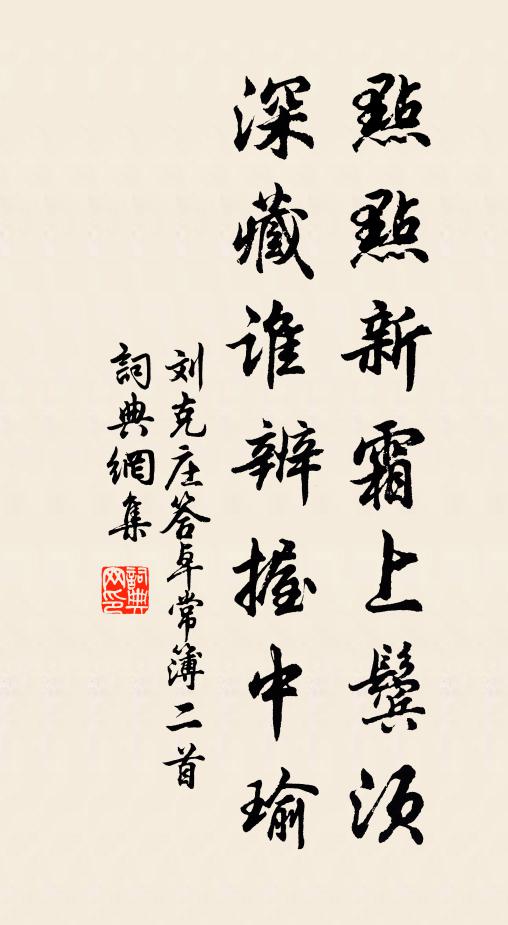 點點新霜上鬓须
深藏谁辨握中瑜
刘克庄答卓常簿二首
詞典網集
詞典网印